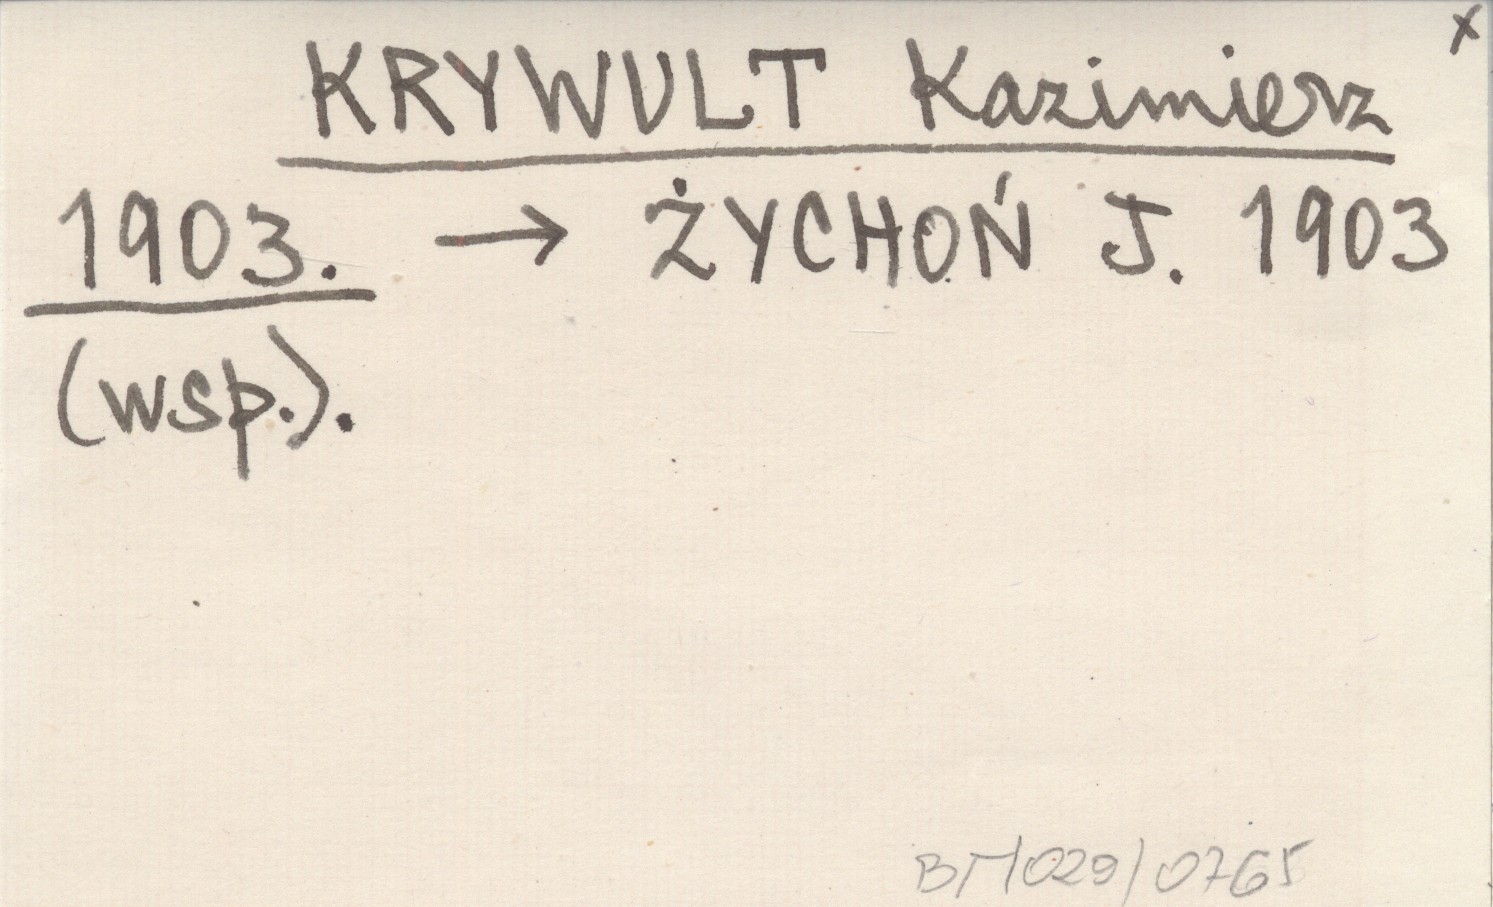 x
KRYWULT Kazimierz
1903. → ŻYCHOŃ J. 1903
(wsp.).
BM/029/0765